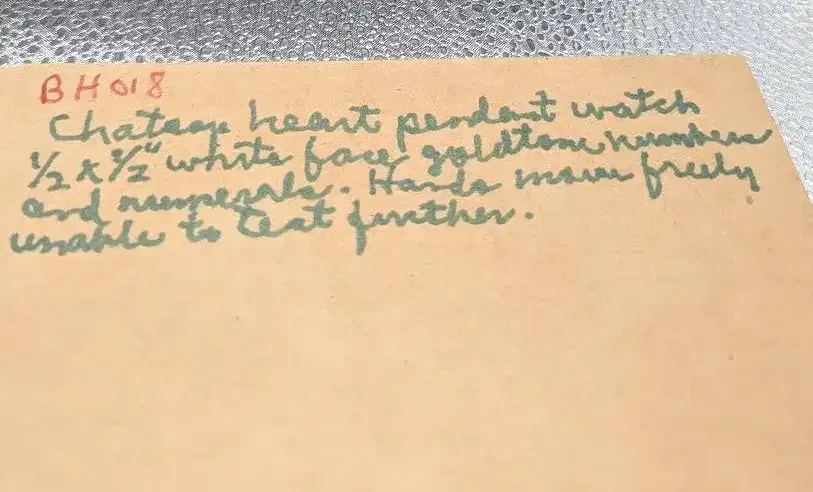 BH018
Chateau heart pendant watch
1/2 x 1/2" white face goldtone numbers
and numerals. Hands move freely
unable to test further.